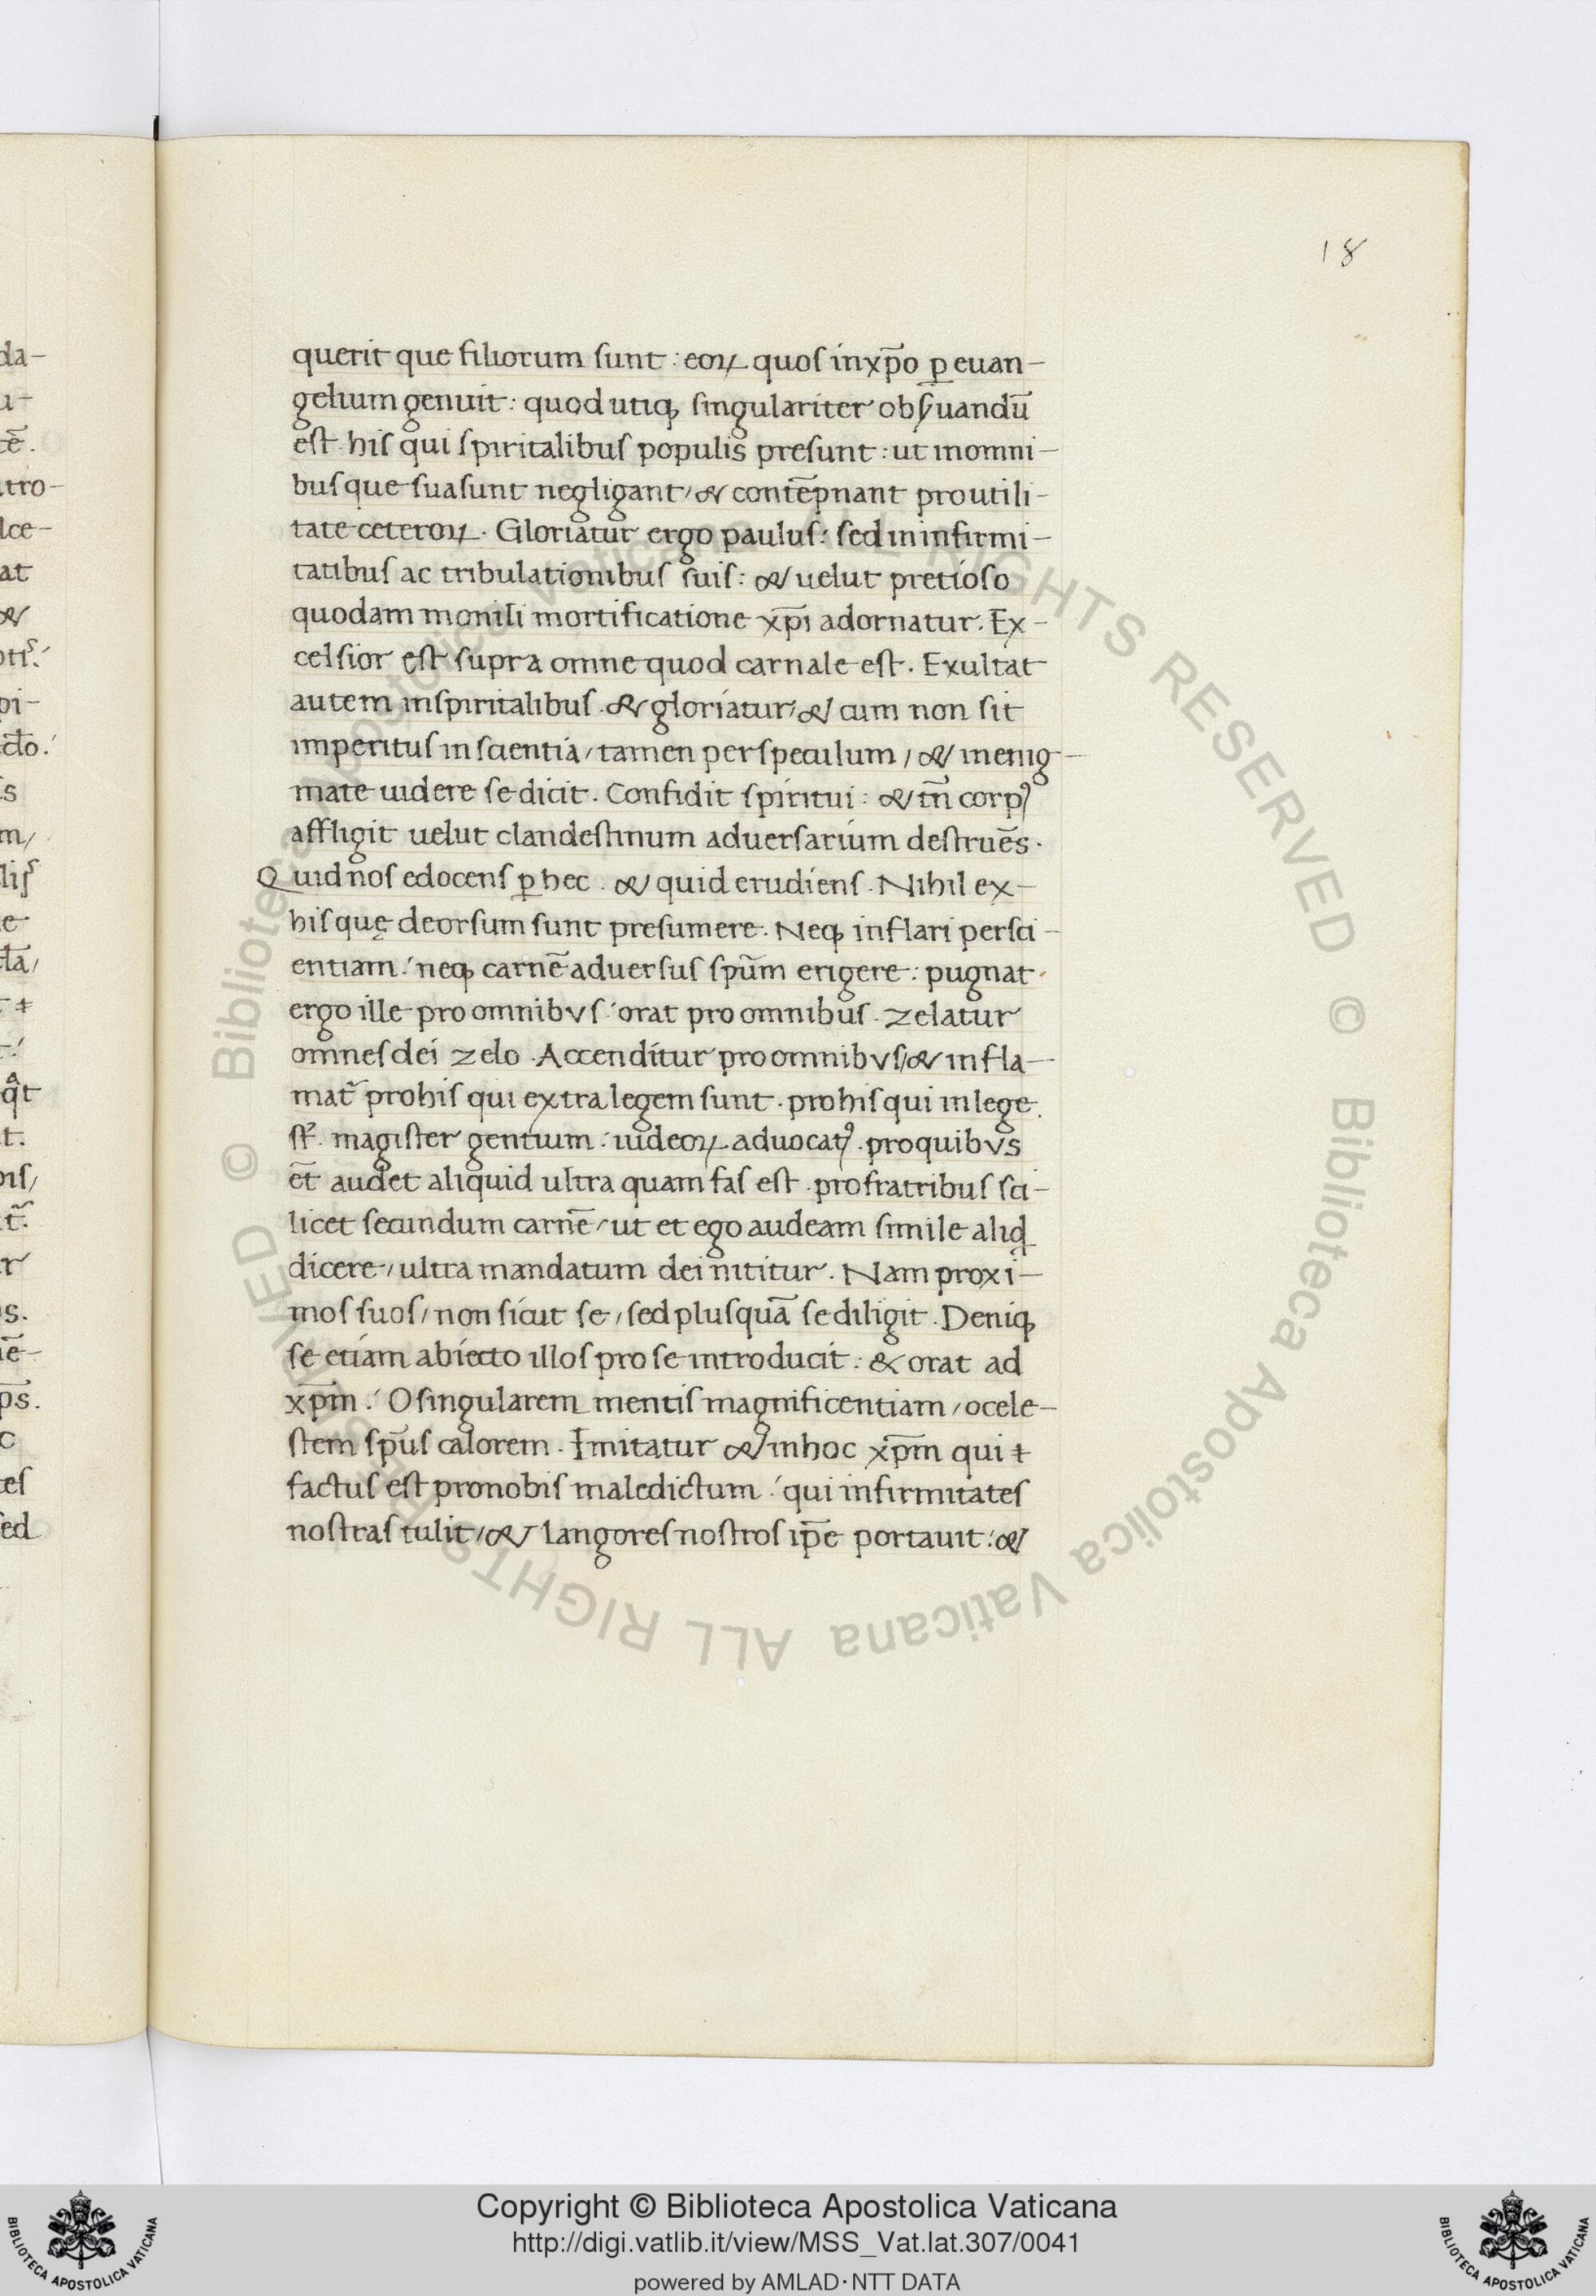 18
da-
querit que filiorum sunt : eoꝝ quos in xp̄o ꝑ euan-
gelium genuit : quod utiqꝫ singulariter obẜuandū
est his qui spiritalibus populis presunt : ut in omni-
bus que sua sunt negligant / & contēpnant pro utili-
tate ceteroꝝ . Gloriatur ergo paulus : sed in infirmi-
tatibus ac tribulationibus suis : & uelut pretioso
quodam monili mortificatione xp̄i adornatur . Ex-
celsior est supra omne quod carnale est . Exultat
autem in spiritalibus . & gloriatur / & cum non sit
imperitus in scientia / tamen per speculum / & in enig-
mate uidere se dicit . Confidit spiritui : & tn̄ corpꝰ
affligit uelut clandestinum aduersarium destruēs .
Quid nos edocens ꝑ hec . & quid erudiens . Nihil ex-
his quę deorsum sunt presumere . Neqꝫ inflari per sci-
entiam : neqꝫ carnē aduersus spūm erigere : pugnat
ergo ille pro omnibus : orat pro omnibus . zelatur
omnes dei zelo . Accenditur pro omnibus / & infla-
mat᷑ pro his qui extra legem sunt . pro his qui in lege
st᷑ . magister gentium : iudeoꝝ aduocatꝰ . pro quibus
et̄ audet aliquid ultra quam fas est . pro fratribus sci-
licet secundum carnē / ut et ego audeam simile aliq̣d
dicere / ultra mandatum dei nititur . Nam proxi-
mos suos / non sicut se / sed plusquā se diligit . Deniqꝫ
se etiam abiecto illos pro se introducit : & orat ad
xp̄m : O singularem mentis magnificentiam / o cele-
stem sp̄us calorem . Imitatur & in hoc xp̄m qui ⁊
factus est pro nobis maledictum : qui infirmitates
nostras tulit / & langores nostros ip̄e portauit : &
© Biblioteca Apostolica Vaticana ALL RIGHTS RESERVED © Biblioteca Apostolica Vaticana ALL RIGHTS RESERVED
Copyright © Biblioteca Apostolica Vaticana
http://digi.vatlib.it/view/MSS_Vat.lat.307/0041
powered by AMLAD·NTT DATA
BIBLIOTECA APOSTOLICA VATICANA
BIBLIOTECA APOSTOLICA VATICANA